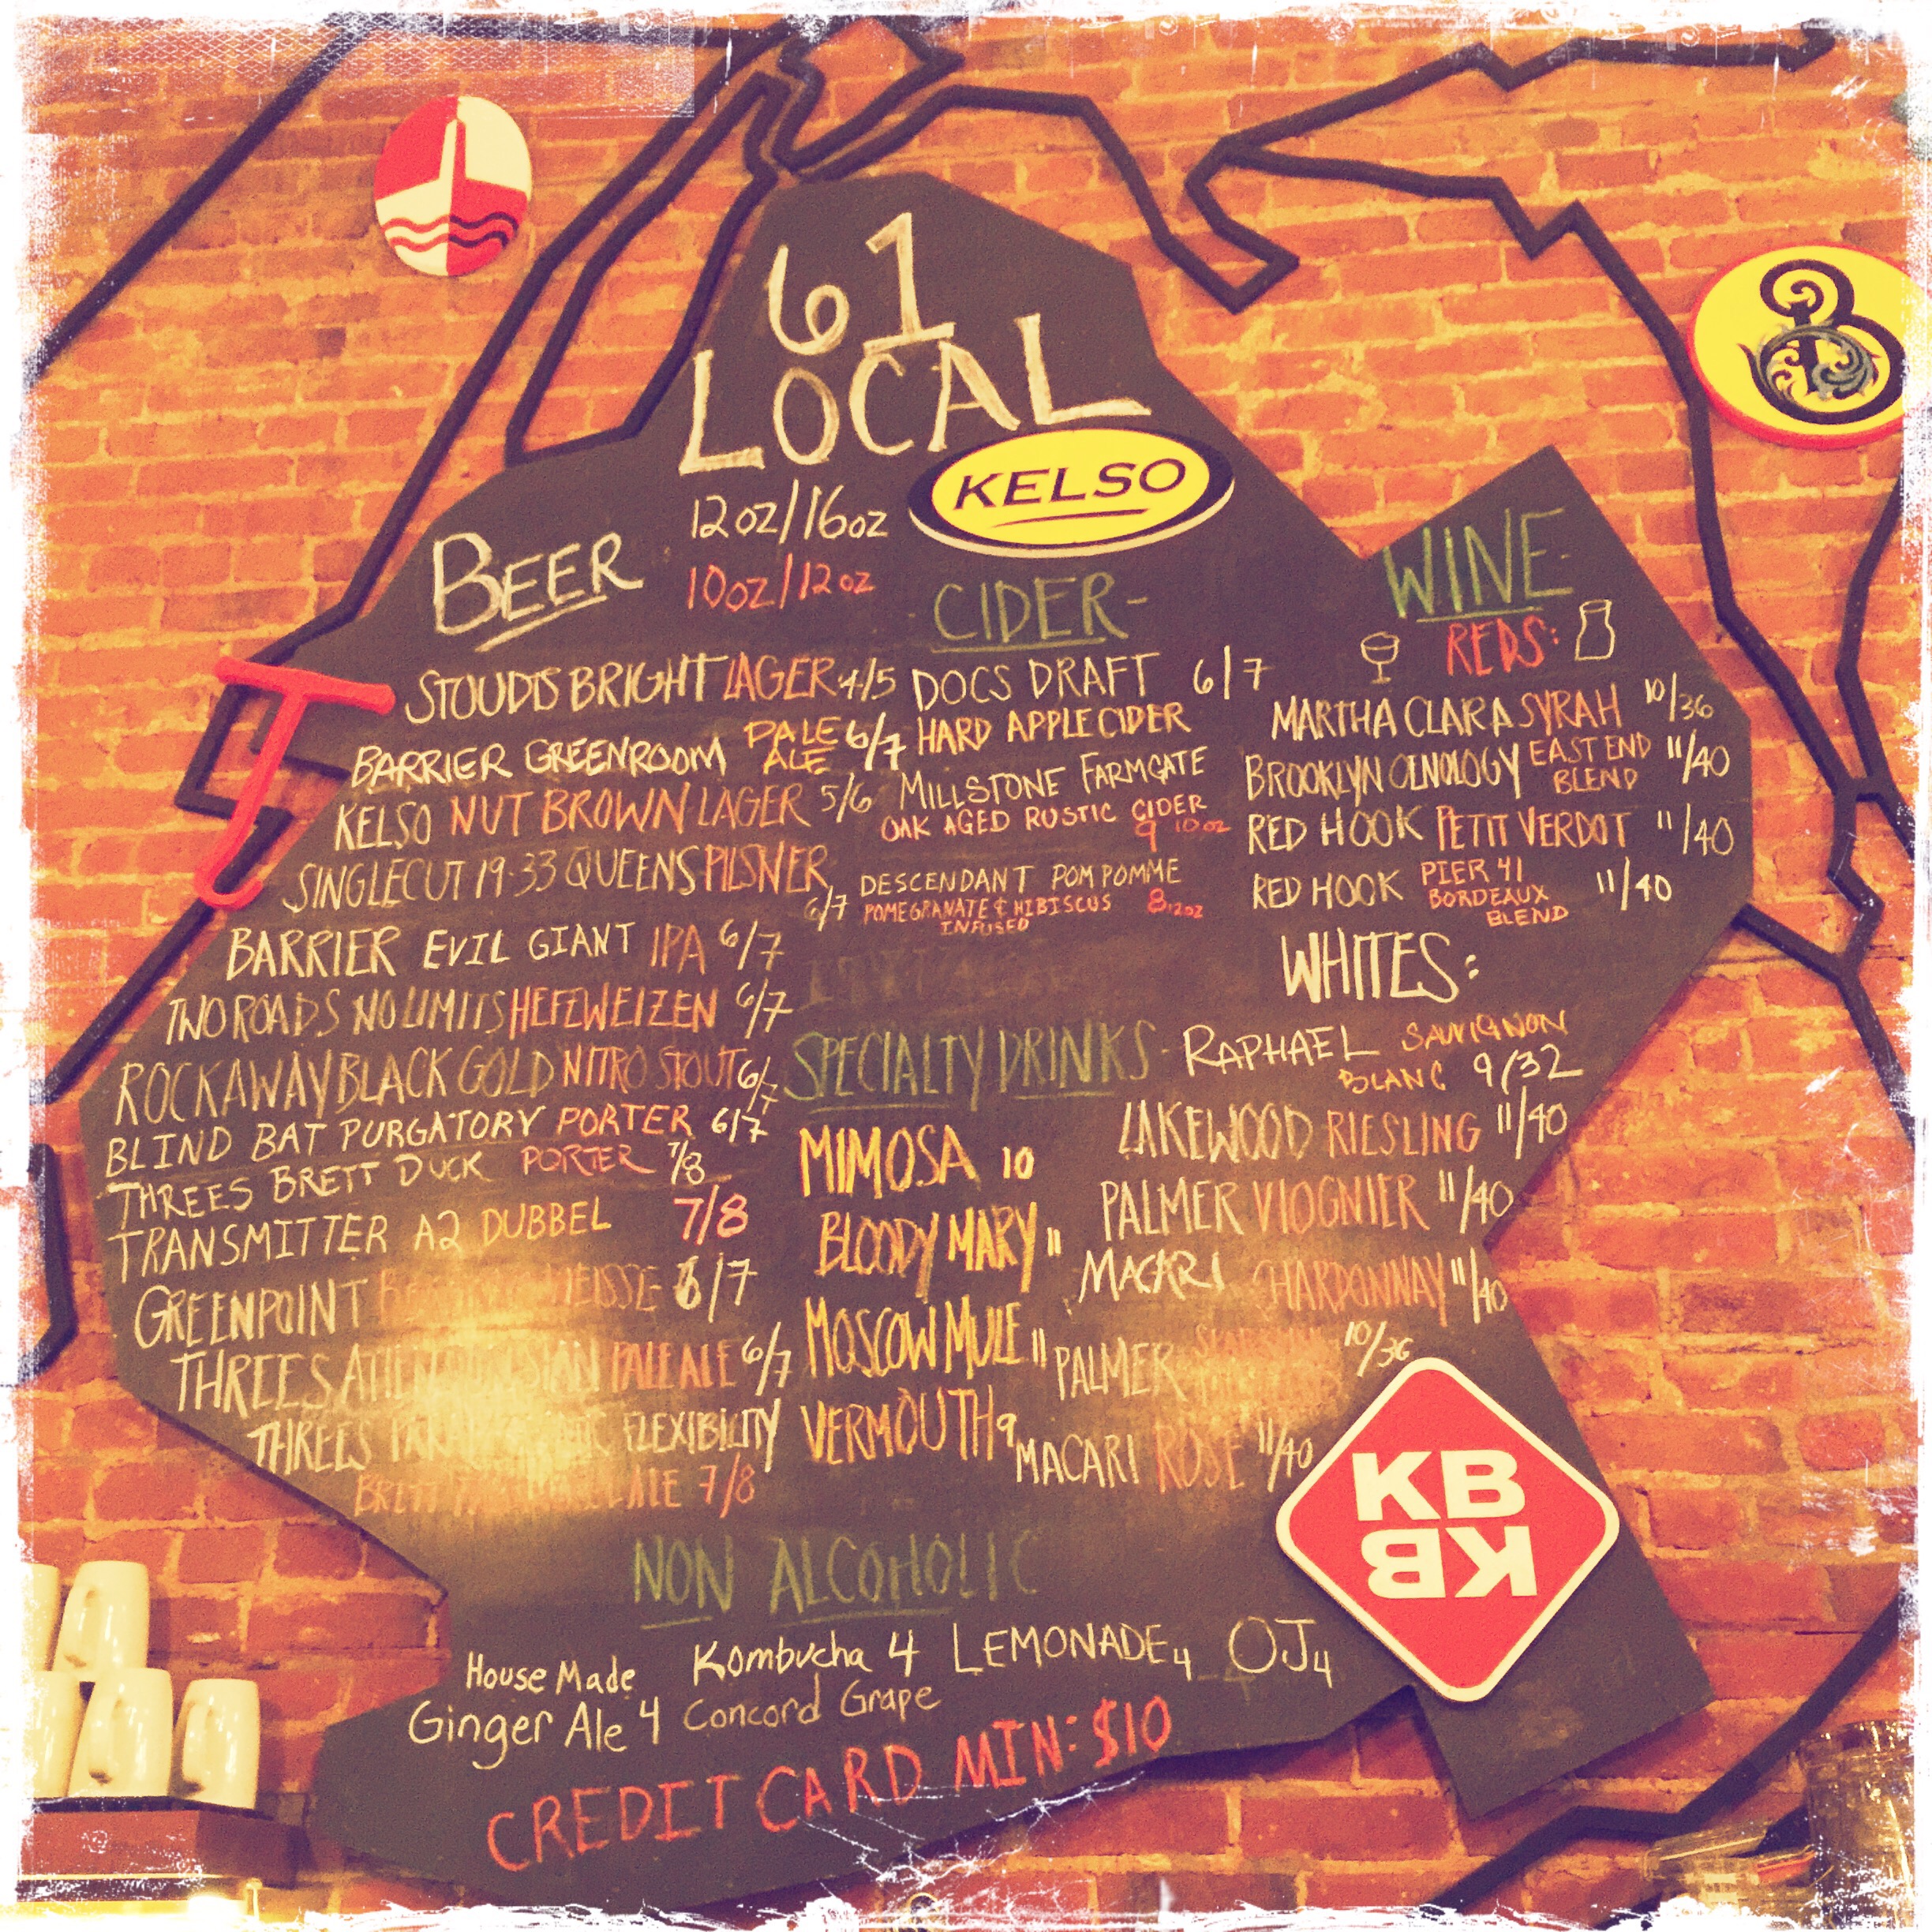 61
LOCAL
KELSO
BEER
12oz/16oz
10oz/12oz
STOUDTS BRIGHT LAGER 4/5
BARRIER GREENROOM PALE ALE 6/7
KELSO NUT BROWN LAGER 5/6
SINGLECUT 19-33 QUEENS PILSNER 6/7
BARRIER EVIL GIANT IPA 6/7
TWO ROADS NO LIMITS HEFEWEIZEN 6/7
ROCKAWAY BLACK GOLD NITRO STOUT 6/7
BLIND BAT PURGATORY PORTER 6/7
THREES BRETT DUCK PORTER 7/8
TRANSMITTER A2 DUBBEL 7/8
GREENPOINT 6/7
THREES PALE ALE 6/7
THREES FLEXIBILITY
BRETT ALE 7/8
-CIDER-
DOCS DRAFT 6/7
HARD APPLE CIDER
MILLSTONE FARMGATE
OAK AGED RUSTIC CIDER
9 10oz
DESCENDANT POM POMME
POMEGRANATE & HIBISCUS 8 12oz
INFUSED
SPECIALTY DRINKS
MIMOSA 10
BLOODY MARY 11
MOSCOW MULE 11
VERMOUTH 9
WINE
REDS:
MARTHA CLARA SYRAH 10/36
BROOKLYN OENOLOGY EAST END BLEND 11/40
RED HOOK PETIT VERDOT 11/40
RED HOOK PIER 41 BORDEAUX BLEND 11/40
WHITES:
RAPHAEL SAUVIGNON
BLANC 9/32
LAKEWOOD RIESLING 11/40
PALMER VIOGNIER 11/40
MACARI CHARDONNAY 11/40
PALMER 10/36
MACARI ROSE 11/40
KB
KB
NON ALCOHOLIC
House Made Kombucha 4 LEMONADE 4 OJ 4
Ginger Ale 4 Concord Grape
CREDIT CARD MIN: $10